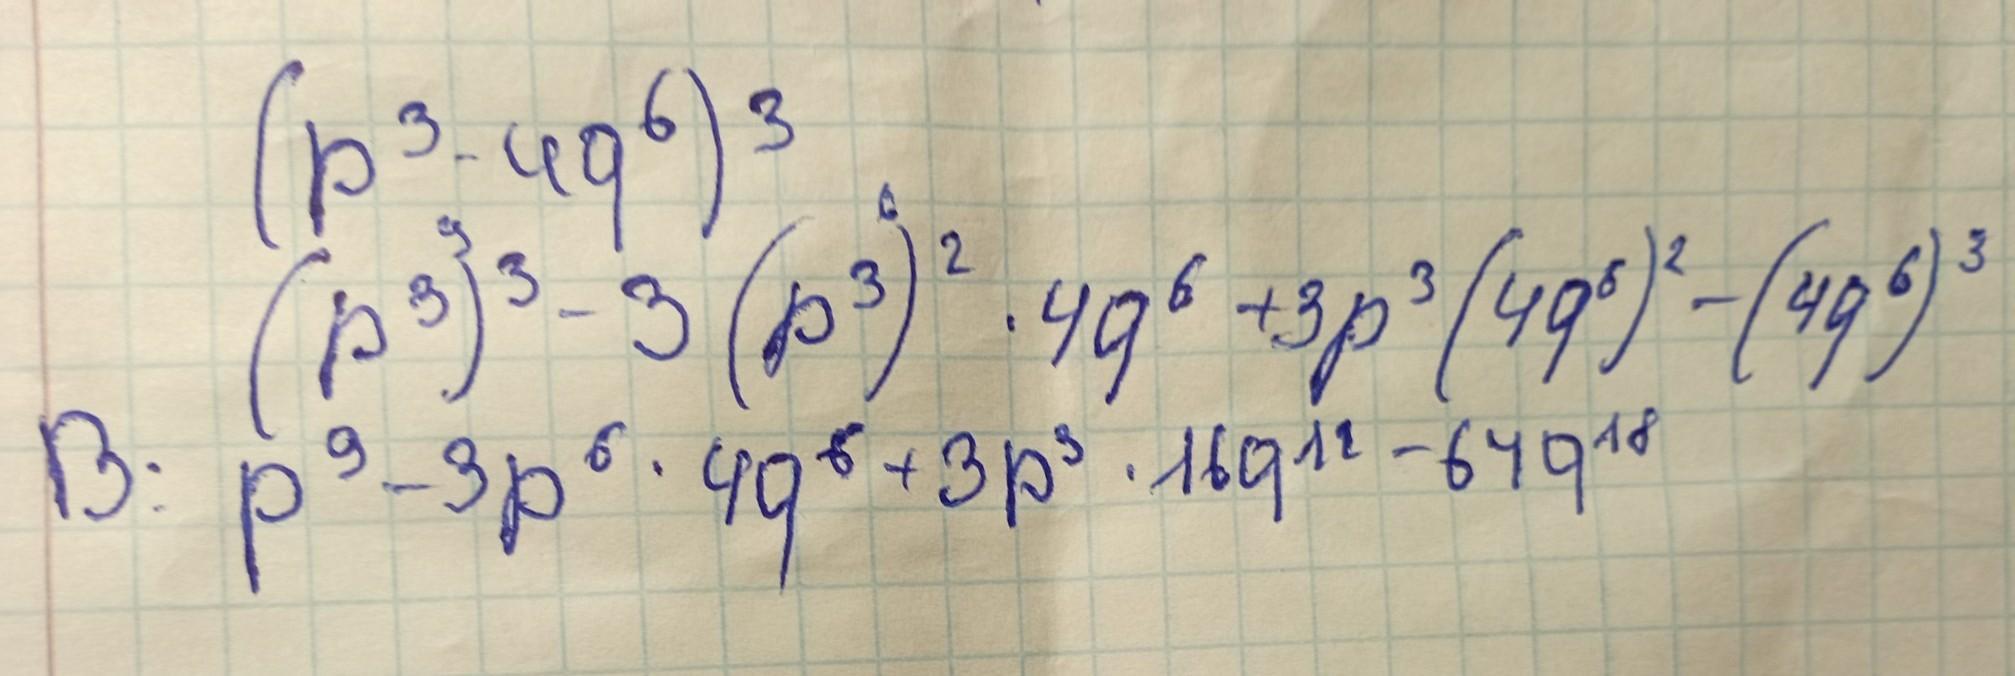 (p³-4q⁶)³
(p³)³ ⁹ - 3(p³)² ⁶ · 4q⁶ + 3p³(4q⁶)² - (4q⁶)³
В: p⁹ - 3p⁶ · 4q⁶ + 3p³ · 16q¹² - 64q¹⁸